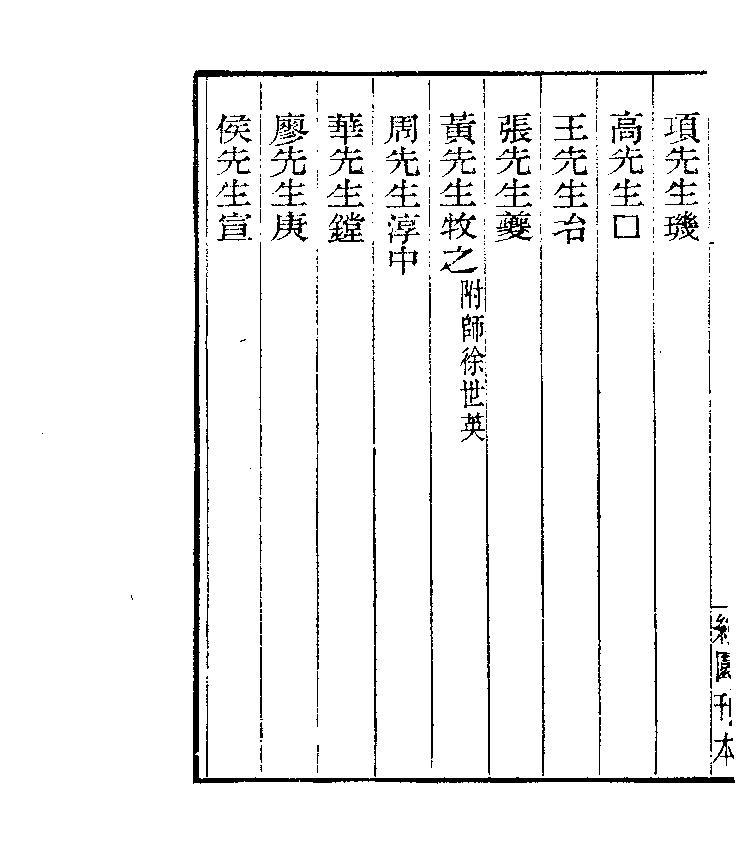 項先生璣
高先生囗
王先生治
張先生夔
黃先生牧之 附師徐世英
周先生淳中
華先生鏜
廖先生庚
侯先生宣
約園刊本